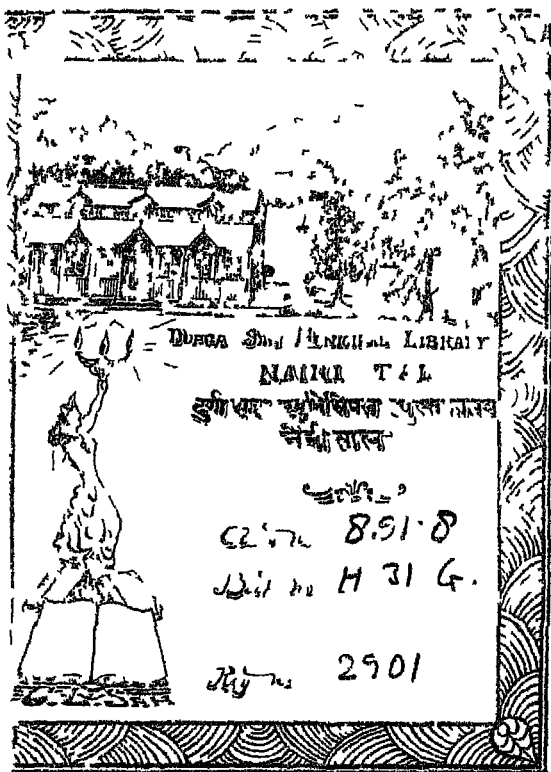 DURGA SAH MUNICIPAL LIBRARY
NAINI TAL
दुर्गा साह म्युनिसिपल पुस्तकालय
नैनीताल
Class No 8.91.8
Book No H 31 G.
Reg No 2901